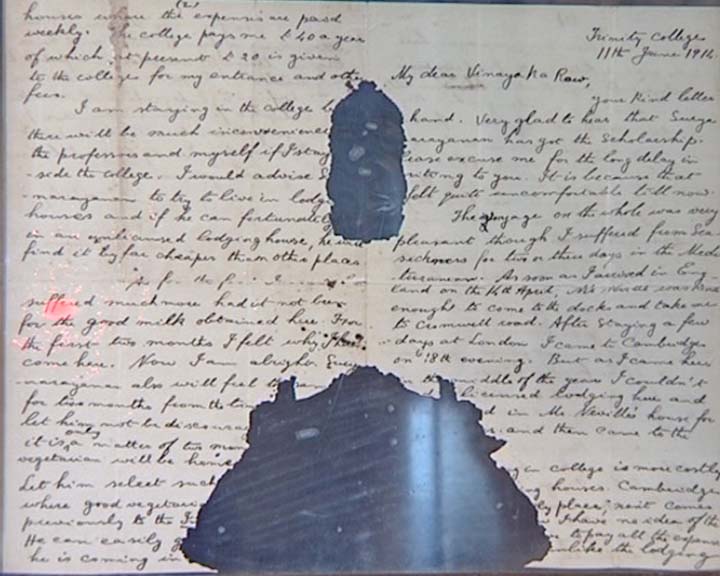 Trinity College
11th June 1914
My dear Vinayaka Row,
your kind letter
hand. Very glad to hear that Surya
narayanan has got the Scholarship.
please excuse me for the long delay in
writing to you. It is because that
felt quite uncomfortable till now.
The voyage on the whole was very
pleasant though I suffered from Sea
sickness for two or three days in the Medi
terranean. As soon as I arrived in Eng
land on the 14th April, Mr was kind
enough to come to the docks and take me
to Cromwell road. After staying a few
days at London I came to Cambridge
on 18th evening. But as I came here
in the middle of the year I couldn't
licensed lodging here and
d in Mr Neville's house for
and then came to the
g in college is more costly
ng houses. Cambridge
ly place, rent comes
I have no idea of the
to pay all the expens
unlike the lodging
(2)
houses where the expenses are paid
weekly. The college pays me £40 a year
of which at present £20 is given
to the college for my entrance and other
fees.
I am staying in the college b
there will be much inconvenience
the professors and myself if I stay
-side the college. I would advise S
-narayanan to try to live in lodg
houses and if he can fortunately
in an lodging house, he will
find it by far cheaper than other places
As for the
suffered much more had it not been
for the good milk obtained here. For
the first two months I felt why I had
come here. Now I am alright. Surya
-narayanan also will feel the same
for two months from the time
let him not be discoura
it is only a matter of two mon
vegetarian will be
Let him select such
where good vegetaria
previously to the I
He can easily g
he is coming in